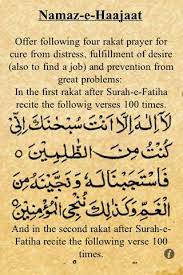 Namaz-e-Haajaat
Offer following four rakat prayer for
cure from distress, fulfillment of desire
(also to find a job) and prevention from
great problems:
In the first rakat after Surah-e-Fatiha
recite the followig verses 100 times.
لَآ اِلٰهَ اِلَّآ اَنْتَ سُبْحٰنَكَ اِنِّیْ
كُنْتُ مِنَ الظّٰلِمِیْنَ
فَاسْتَجَبْنَا لَهٗ وَنَجَّیْنٰهُ مِنَ
الْغَمِّ وَكَذٰلِكَ نُـْۨجِی الْمُؤْمِنِیْنَ
And in the second rakat after Surah-e-
Fatiha recite the following verse 100
times.